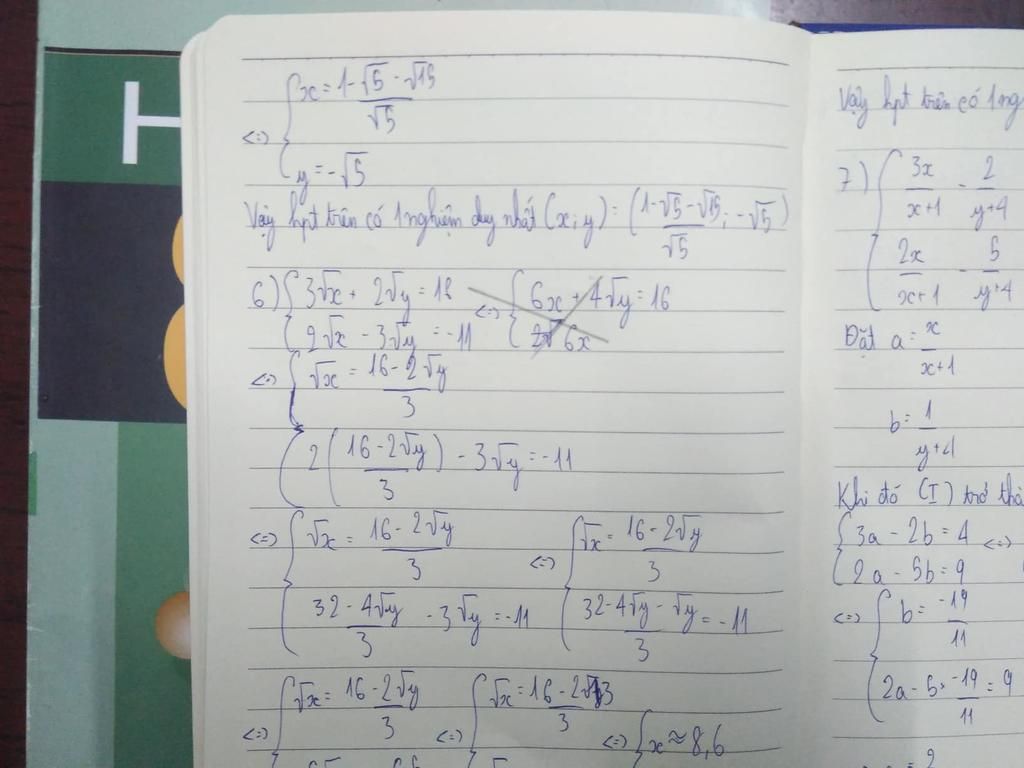 H
x = 1 - √5 - √15
√5
<=>
y = -√5
Vậy hpt trên có 1 nghiệm duy nhất (x; y) = (1 - √5 - √15 / √5 ; -√5)
6) 3√x + 2√y = 16 <=> 6x + 4√y = 16
2√x - 3√y = -11 6x
<=> √x = 16 - 2√y
3
2 (16 - 2√y / 3) - 3√y = -11
<=> √x = 16 - 2√y / 3 <=> √x = 16 - 2√y / 3
32 - 4√y / 3 - 3√y = -11 32 - 4√y - √y / 3 = -11
√x = 16 - 2√y / 3 √x = 16 - 2√ 3 / 3
<=> <=> <=> x ≈ 8,6
Vậy hpt trên có 1 ng
7) 3x / x+1 - 2 / y+4
2x / x+1 - 5 / y+4
Đặt a = x / x+1
b = 1 / y+4
Khi đó (I) trở thà
3a - 2b = 4 <=>
2a - 5b = 9
<=> b = -19 / 11
2a - 5 · -19 / 11 = 9